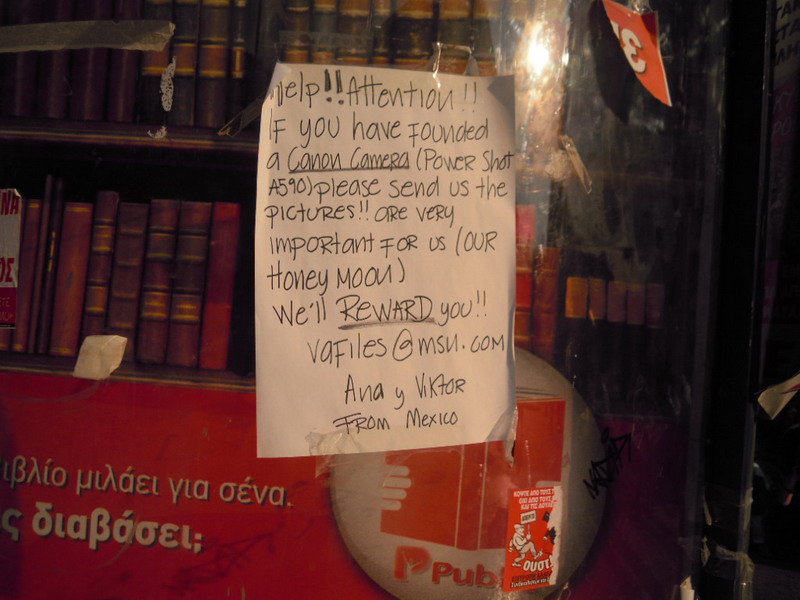 Help!! Attention!!
If you have founded
a Canon Camera (Power Shot
A590) please send us the
pictures!! are very
important for us (our
Honey Moon)
We'll REWARD you!!
vafiles@msn.com
Ana y Viktor
From Mexico
ιβλίο μιλάει για σένα.
ς διαβάσει;
Publ
ΟΥΣΤ